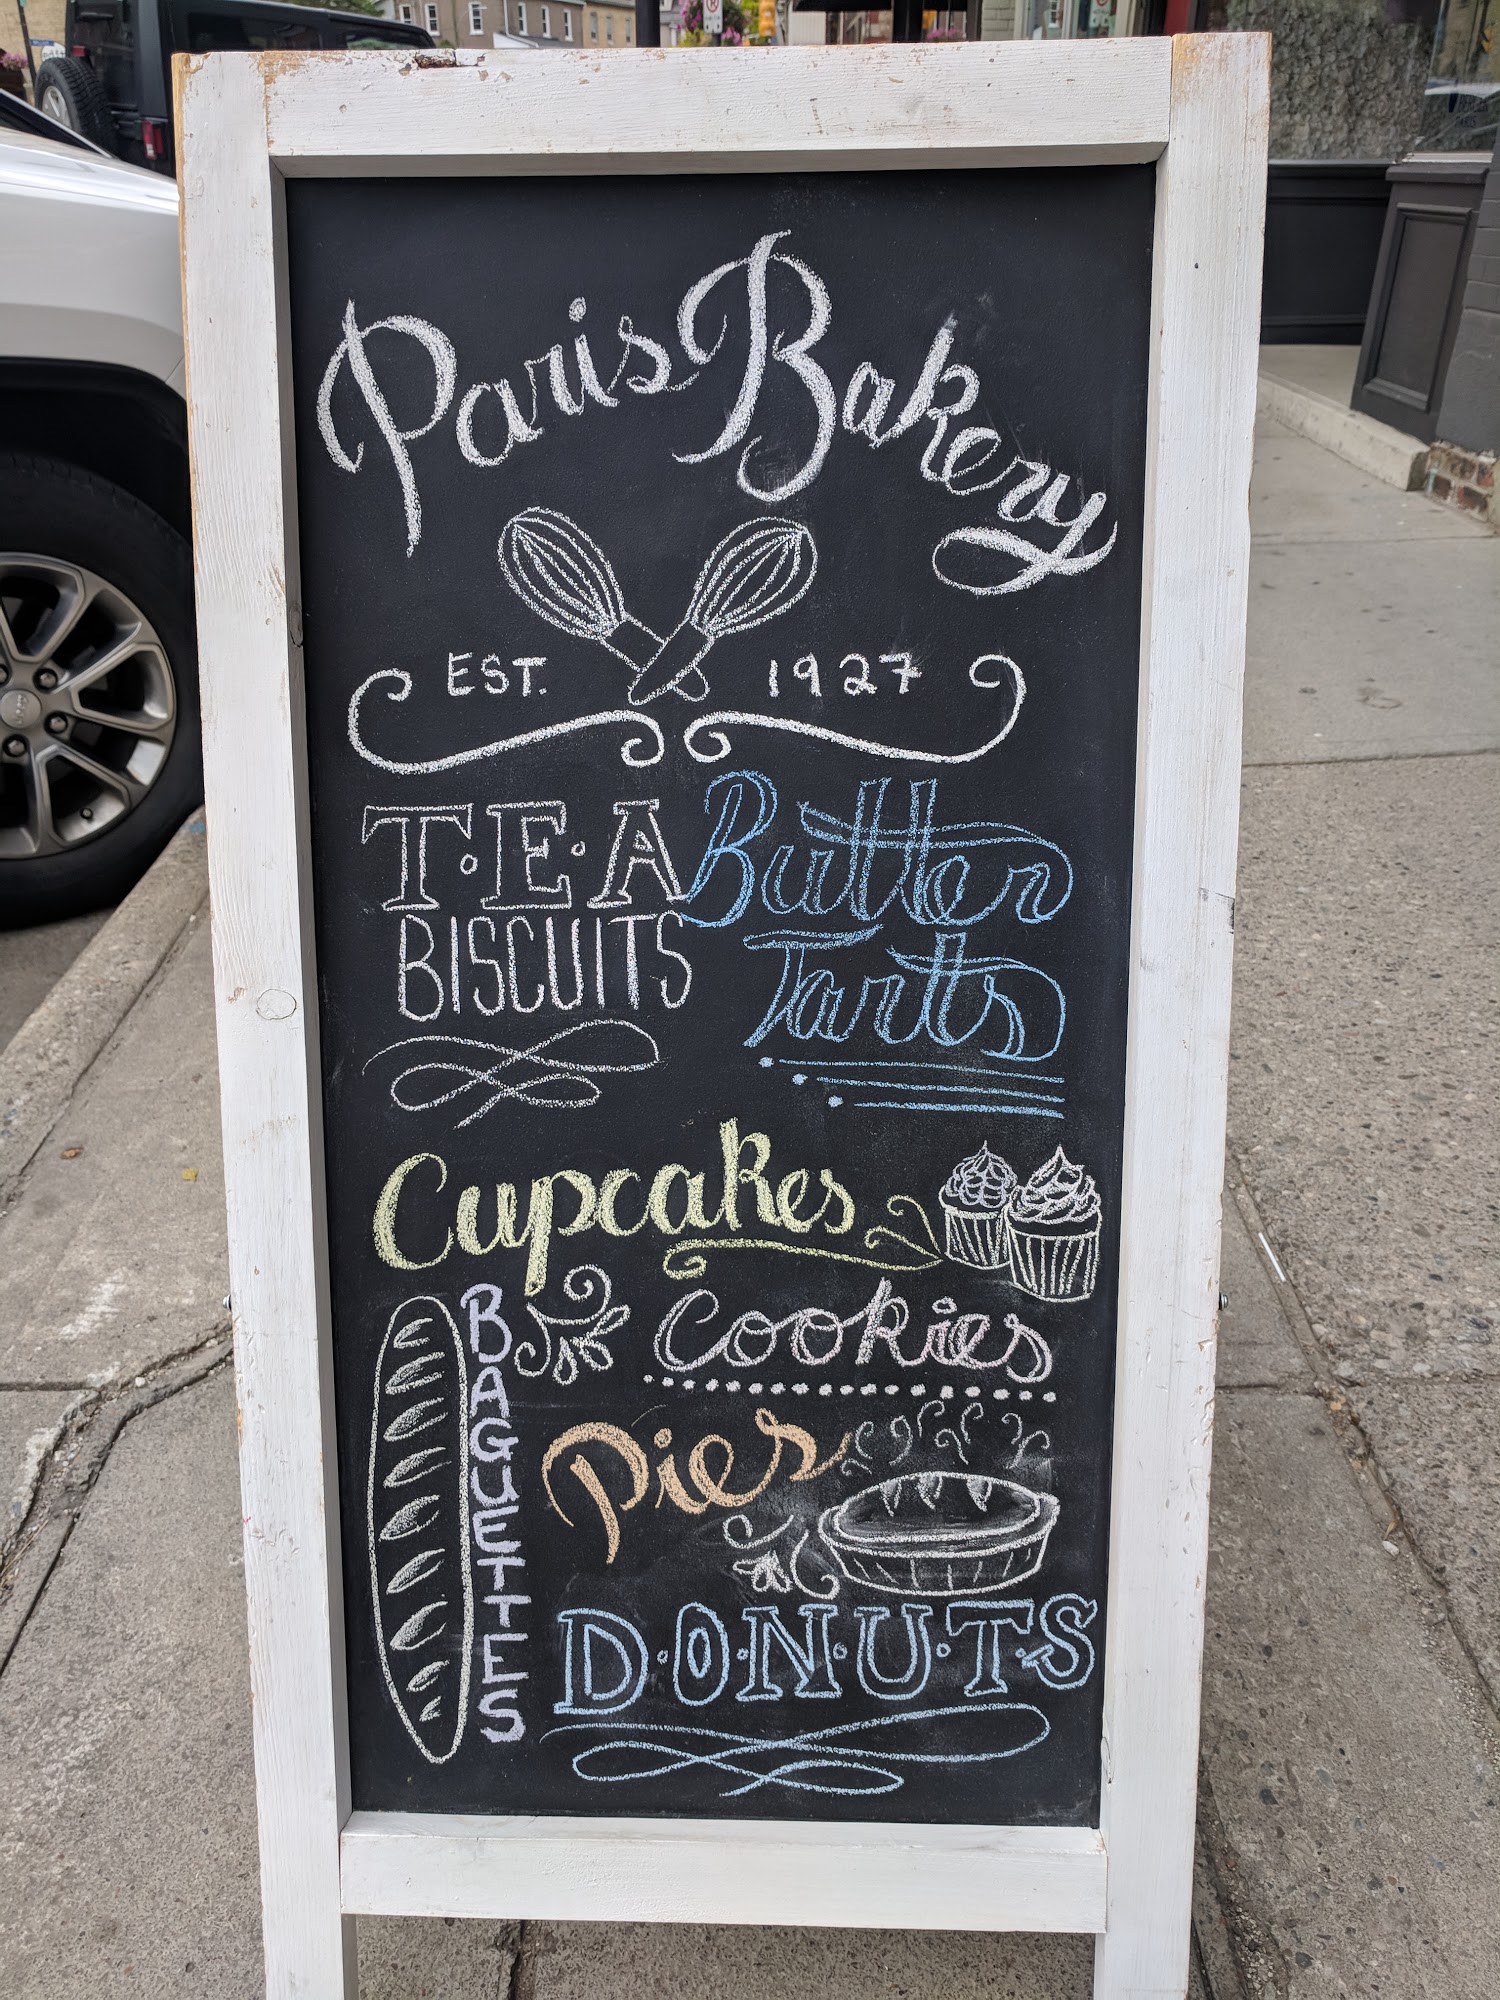 Paris Bakery
EST. 1927
T·E·A
BISCUITS
Butter
Tarts
Cupcakes
BAGUETTES
Cookies
Pies
D·O·N·U·T·S